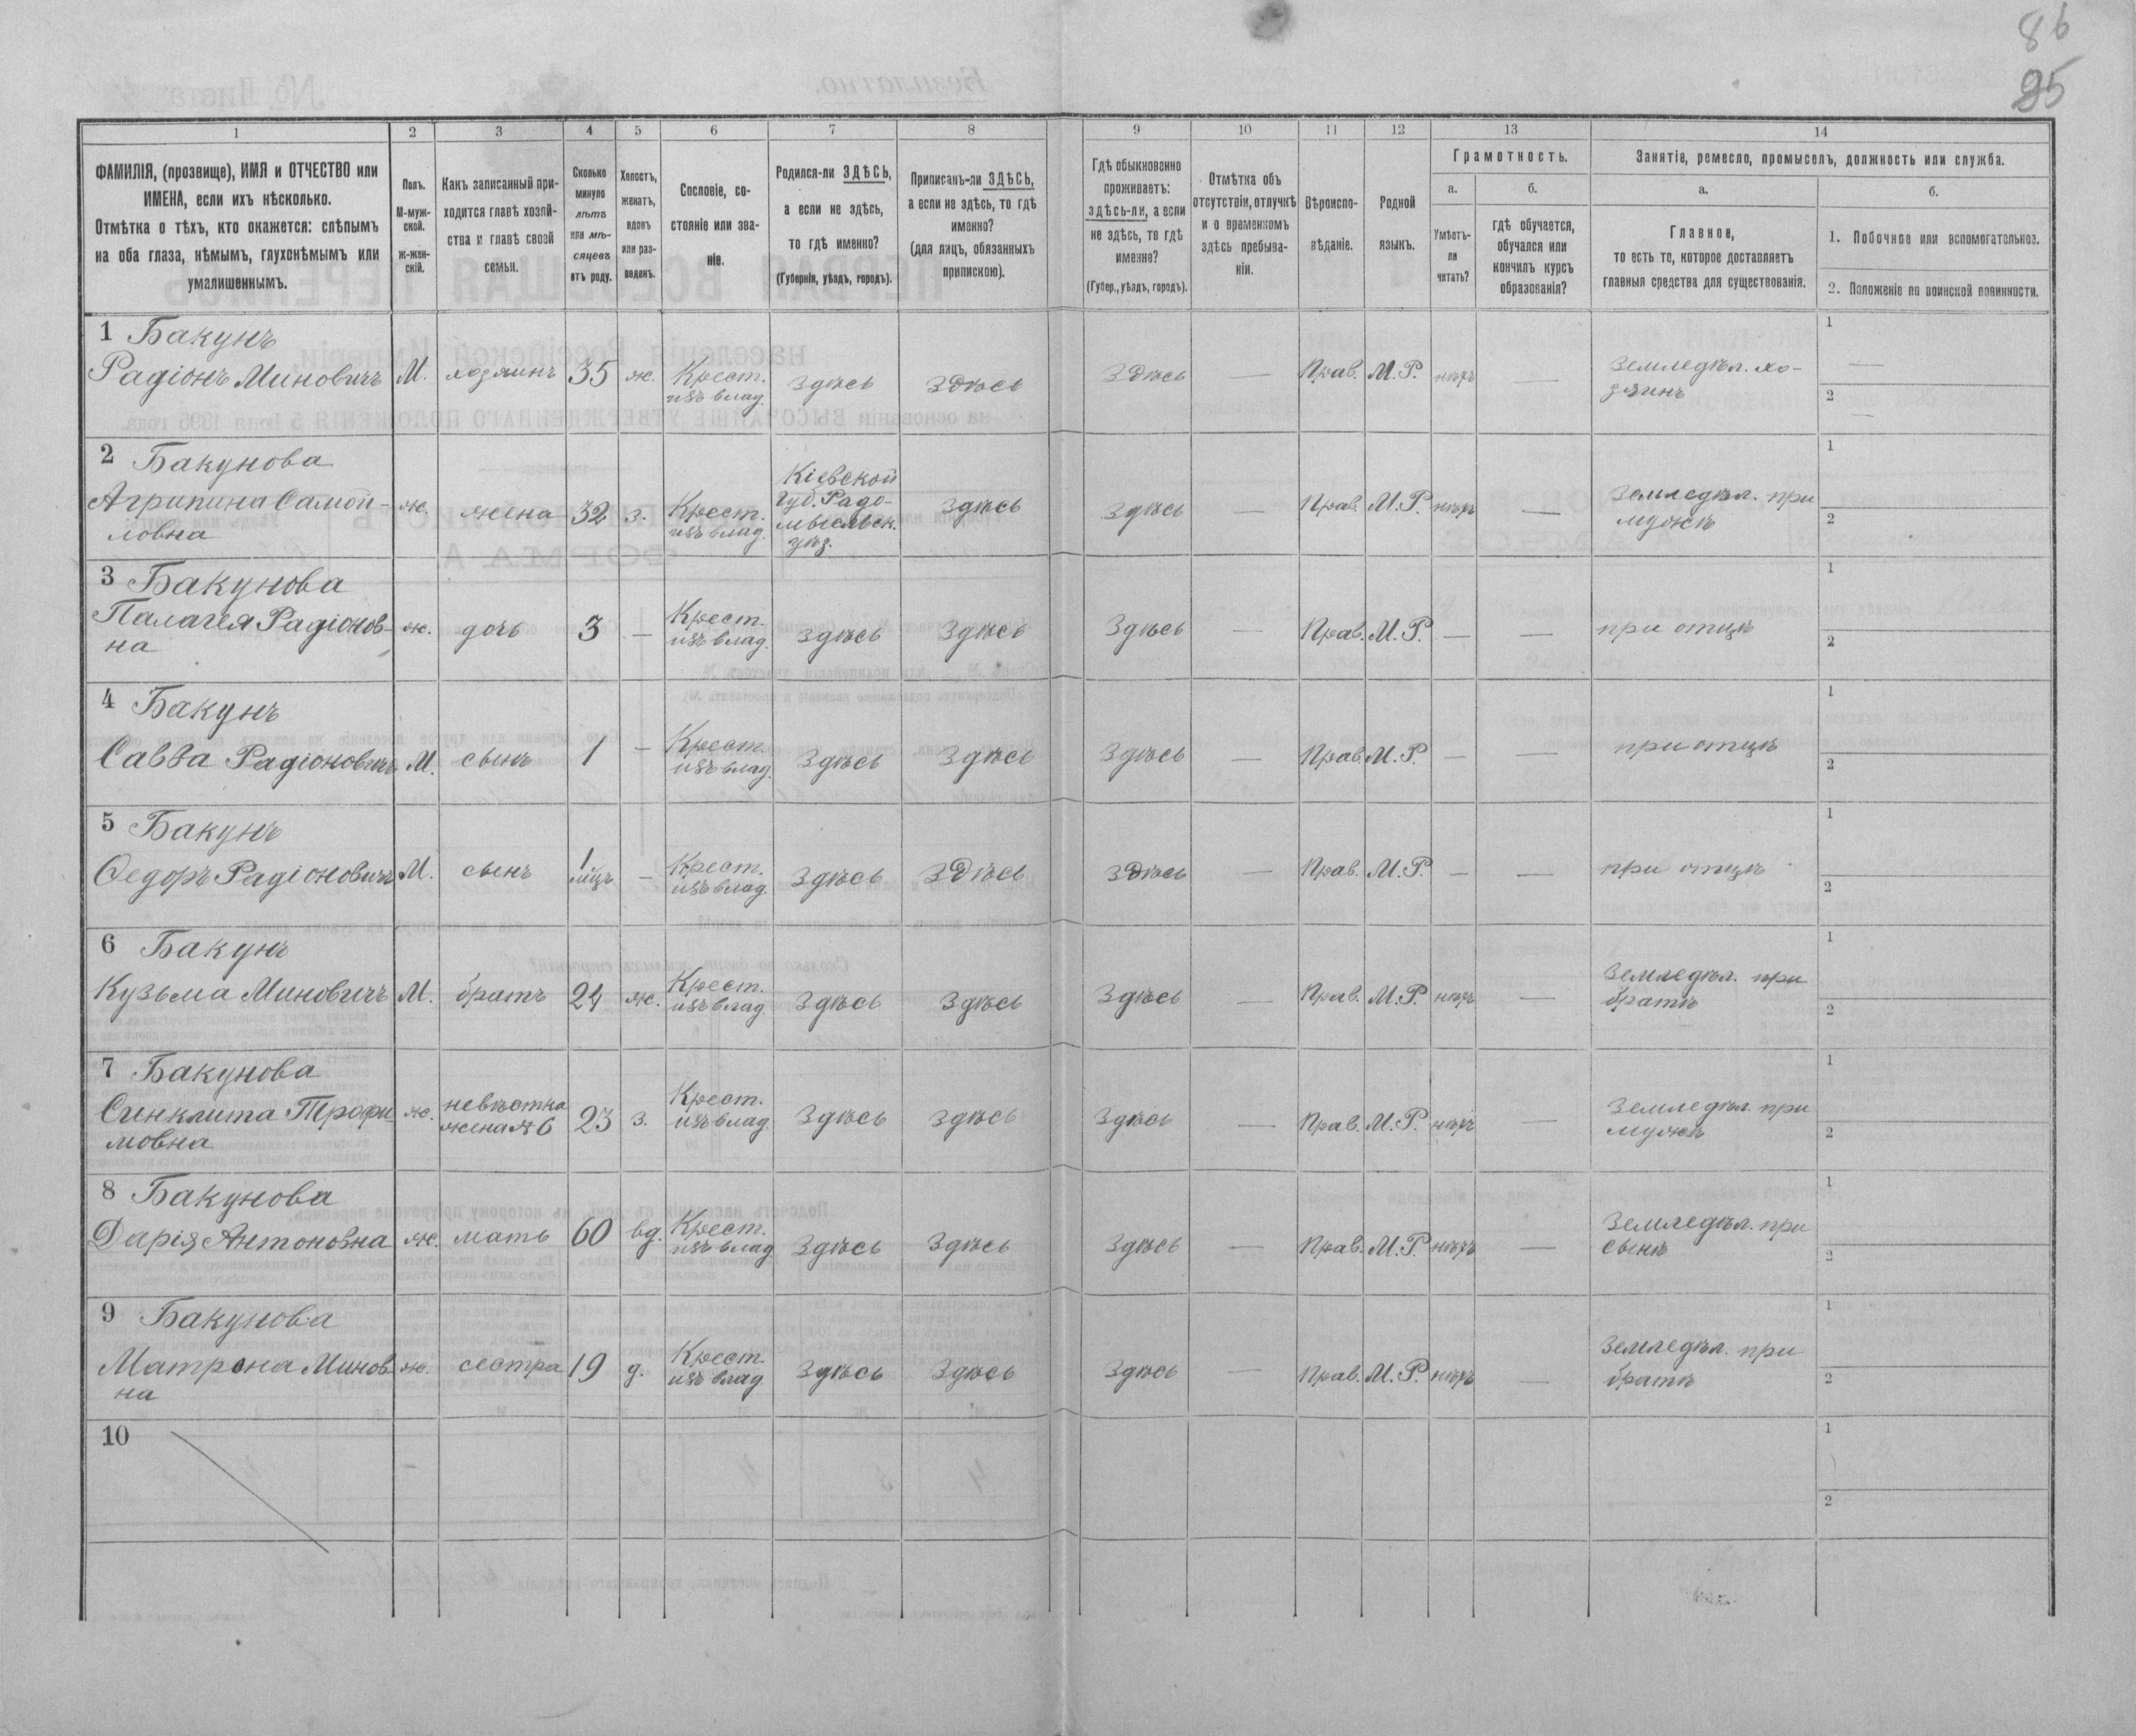 86
95
1
2
3
4
5
6
7
8
9
10
11
12
13
14
ФАМИЛІЯ, (прозвище), ИМЯ и ОТЧЕСТВО или
ИМЕНА, если ихъ нѣсколько.
Отмѣтка о тѣхъ, кто окажется: слѣпымъ
на оба глаза, нѣмымъ, глухонѣмымъ или
умалишеннымъ.
Полъ.
М-муж-
ской.
ж-жен-
скій.
Какъ записанный при-
ходится главѣ хозяй-
ства и главѣ своей
семьи.
Сколько
минуло
лѣтъ
или мѣ-
сяцевъ
отъ роду.
Холостъ,
женатъ,
вдовъ
или раз-
веденъ.
Сословіе, со-
стояніе или зва-
ніе.
Родился-ли ЗДѢСЬ,
а если не здѣсь,
то гдѣ именно?
(Губернія, уѣздъ, городъ).
Приписанъ-ли ЗДѢСЬ,
а если не здѣсь, то гдѣ
именно?
(для лицъ, обязанныхъ
припискою).
Гдѣ обыкновенно
проживаетъ:
здѣсь-ли, а если
не здѣсь, то гдѣ
именно?
(Губер., уѣздъ, городъ).
Отмѣтка объ
отсутствіи, отлучкѣ
и о временномъ
здѣсь пребыва-
ніи.
Вѣроиспо-
вѣданіе.
Родной
языкъ.
Грамотность.
а.
б.
Умѣетъ-
ли
читать?
гдѣ обучается,
обучался или
кончилъ курсъ
образованія?
Занятіе, ремесло, промыселъ, должность или служба.
а.
б.
Главное,
то есть то, которое доставляетъ
главныя средства для существованія.
1. Побочное или вспомогательное.
2. Положеніе по воинской повинности.
1 Бакунъ
Радіонъ Миновичъ М. хозяинъ 35 ж. Крест.
изъ влад. здѣсь здѣсь здѣсь — Прав. М.Р. нѣтъ — Земледѣл. хо-
зяинъ
1 —
2 —
2 Бакунова
Агрипина Самой-
ловна ж. жена 32 з. Крест.
изъ влад. Кіевской
губ. Радо-
мысльск.
уѣз. здѣсь здѣсь — Прав. М.Р. нѣтъ — Земледѣл. при
мужѣ
1
2
3 Бакунова
Палагея Радіонов-
на ж. дочь 3 — Крест.
изъ влад. здѣсь здѣсь здѣсь — Прав. М.Р. — — при отцѣ
1
2
4 Бакунъ
Савва Радіоновичъ М. сынъ 1 — Крест.
изъ влад. здѣсь здѣсь здѣсь — Прав. М.Р. — — при отцѣ
1
2
5 Бакунъ
Ѳедоръ Радіоновичъ М. сынъ 1
мѣцъ — Крест.
изъ влад. здѣсь здѣсь здѣсь — Прав. М.Р. — — при отцѣ
1
2
6 Бакунъ
Кузьма Миновичъ М. братъ 24 ж. Крест.
изъ влад. здѣсь здѣсь здѣсь — Прав. М.Р. нѣтъ — Земледѣл. при
братѣ
1
2
7 Бакунова
Синклита Трофи-
мовна ж. невѣстка
жена № 6 23 з. Крест.
изъ влад. здѣсь здѣсь здѣсь — Прав. М.Р. нѣтъ — Земледѣл. при
мужѣ
1
2
8 Бакунова
Дарія Антоновна ж. мать 60 вд. Крест.
изъ влад. здѣсь здѣсь здѣсь — Прав. М.Р. нѣтъ — Земледѣл. при
сынѣ
1
2
9 Бакунова
Матрона Минов-
на ж. сестра 19 д. Крест.
изъ влад. здѣсь здѣсь здѣсь — Прав. М.Р. нѣтъ — Земледѣл. при
братѣ
1
2
10
1
2